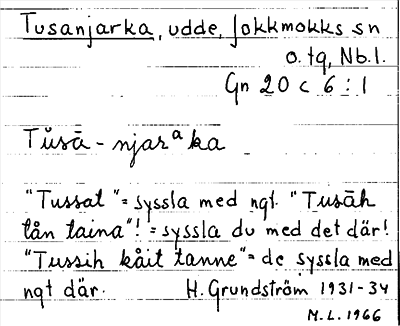 Tusanjarka, udde, Jokkmokks sn
o. tq, Nb.l.
Gn 20 c 6 : 1
Tŭsā - njarᵃka
"Tussat" = syssla med ngt. "Tusāh
tån taina"! = syssla du med det där!
"Tussih kåit tanne" = de syssla med
ngt där. H. Grundström 1931-34
M. L. 1966